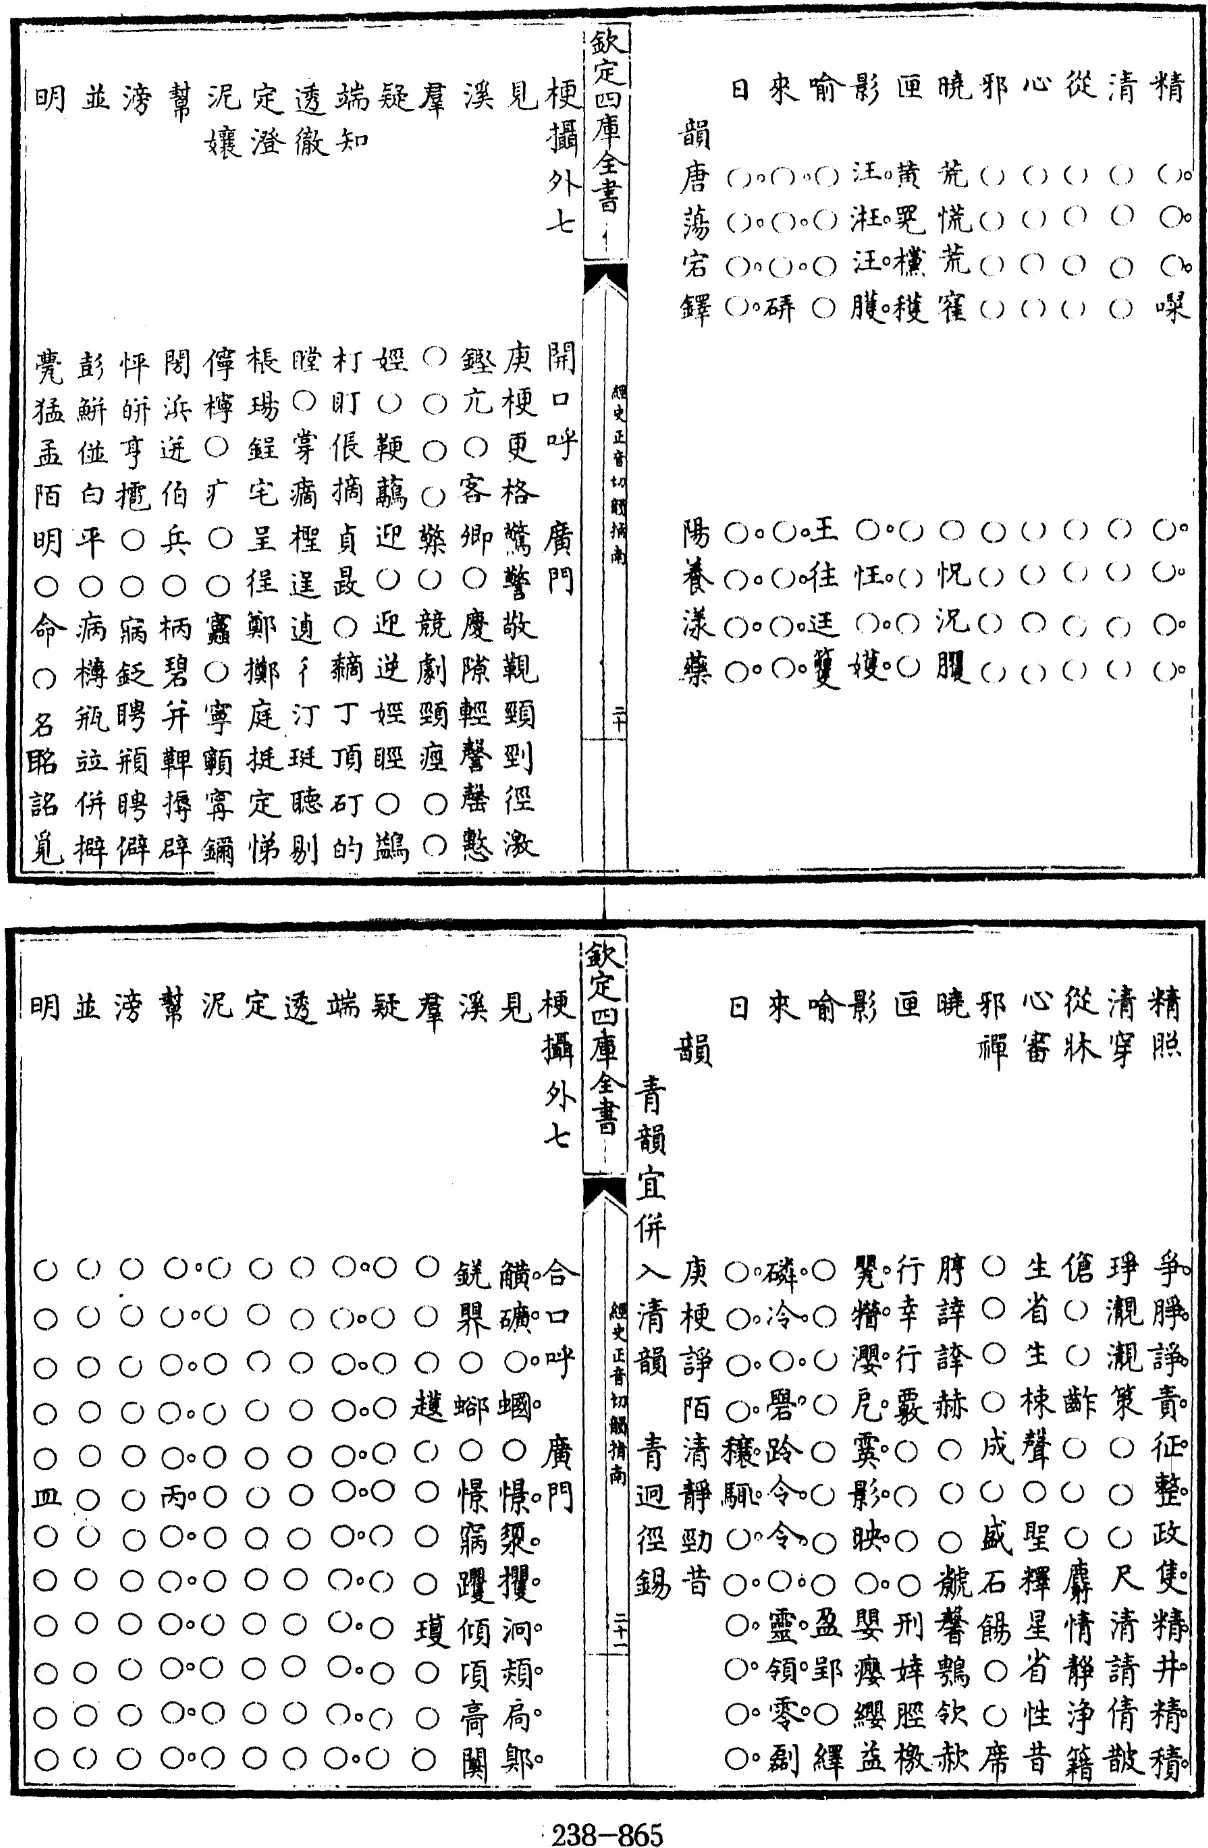 精 ○○○ ○○○○
清 ○○○○ ○○○○
從 ○○○○ ○○○○
心 ○○○○ ○○○○
邪 ○○○○ ○○○○
曉 荒慌荒 ○怳況矍
匣 黄晃櫎穫 ○○○○
影 汪汪臒 ○忹○嬳
喻 ○○○○ 王往迋籰
來 ○○○硦 ○○○○
日 ○○○○ ○○○○
韻 唐蕩宕鐸 陽養漾藥
欽定四庫全書
經史正音切韻指南
二十
梗攝外七 開口呼 廣門
見 庚梗更格驚警敬頸剄徑激
溪 鏗亢○客卿○慶隙輕謦罄憼
羣 ○○○○檠○競劇頸痙○○
疑 娙○鞕虉迎○迎逆娙脛○鷁
端知 朾盯倀摘貞晸○䵂丁頂矴的
透徹 瞠○牚檉逞遉彳汀珽聽剔
定澄 棖瑒鋥宅呈徎鄭擲庭挺定悌
泥孃 儜檸○疒○○○寧顊甯鑈
幫 閍浜迸伯兵○柄碧并鞞摒辟
滂 怦皏亨○○寎聘頩聘僻
並 彭鮩偋白平○病欂瓶竝併擗
明 甍猛孟陌明○命○名眳詺覓
精照 爭睜諍責征整政隻精井精積
清穿 琤策○○○尺清請倩皵
從牀 傖○○齚○○○麝情靜淨籍
心審 生省生棟聲○聖釋星省性昔
邪禪 ○○○○成○盛石餳○○席
曉 脝諱諱赫○○○虩馨欯赥
匣 行幸行覈○○○○刑婞脛檄
影 甖瀴戹霙影映○嬰癭纓益
喻 ○○○○○○○○盈郢○繹
來 磷冷○礐跉令令○靈領零
日 ○○○○穰○○○○○○
韻 庚梗諍陌 清靜勁昔
青韻宜併入清韻 青迥徑錫
欽定四庫全書
經史正音切韻指南
二十一
梗攝外七 合口呼 廣門
見 觵礦○蟈○憬攫泂熲扃
溪 ○○憬寎躩傾頃闃
羣 ○○○○○○○瓊○○○
疑 ○○○○○○○○○○○○
端 ○○○○○○○○○○○○
透 ○○○○○○○○○○○○
定 ○○○○○○○○○○○○
泥 ○○○○○○○○○○○○
幫 ○○○○○丙○○○○○○
滂 ○○○○○○○○○○○○
並 ○○○○○○○○○○○○
明 ○○○○○皿○○○○○○
238—865